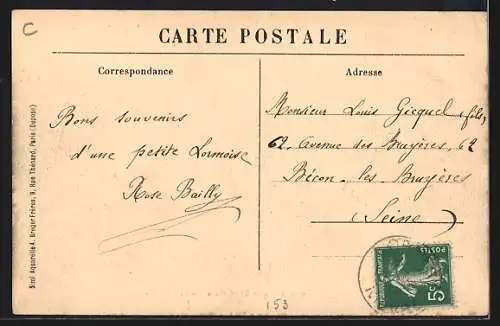 C
CARTE POSTALE
Correspondance
Adresse
Bons souvenirs
d'une petite Lormoise
Rose Bailly
Monsieur Louis Gicquel (fils)
62, Avenue des Bruyères, 62
Bécon-les Bruyères
(Seine)
Simi Aquarelle A. Breger Frères, 9, Rue Thénard, Paris
POSTES
5c
153